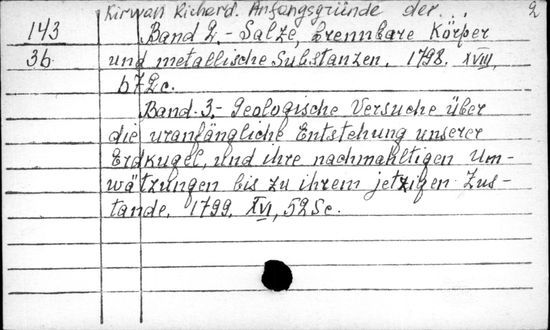 Kirwan Richard. Anfangsgründe der... 2
143 Band 2.- Salze, brennbare Körper
36. und metallische Substanzen. 1798. XVIII,
672c.
Band. 3.- Geologische Versuche über
die uranfängliche Entstehung unserer
Erdkugel, und ihre nachmahligen Um-
wätzungen bis zu ihrem jetzigen Zus-
tande. 1799. XVI, 525c.